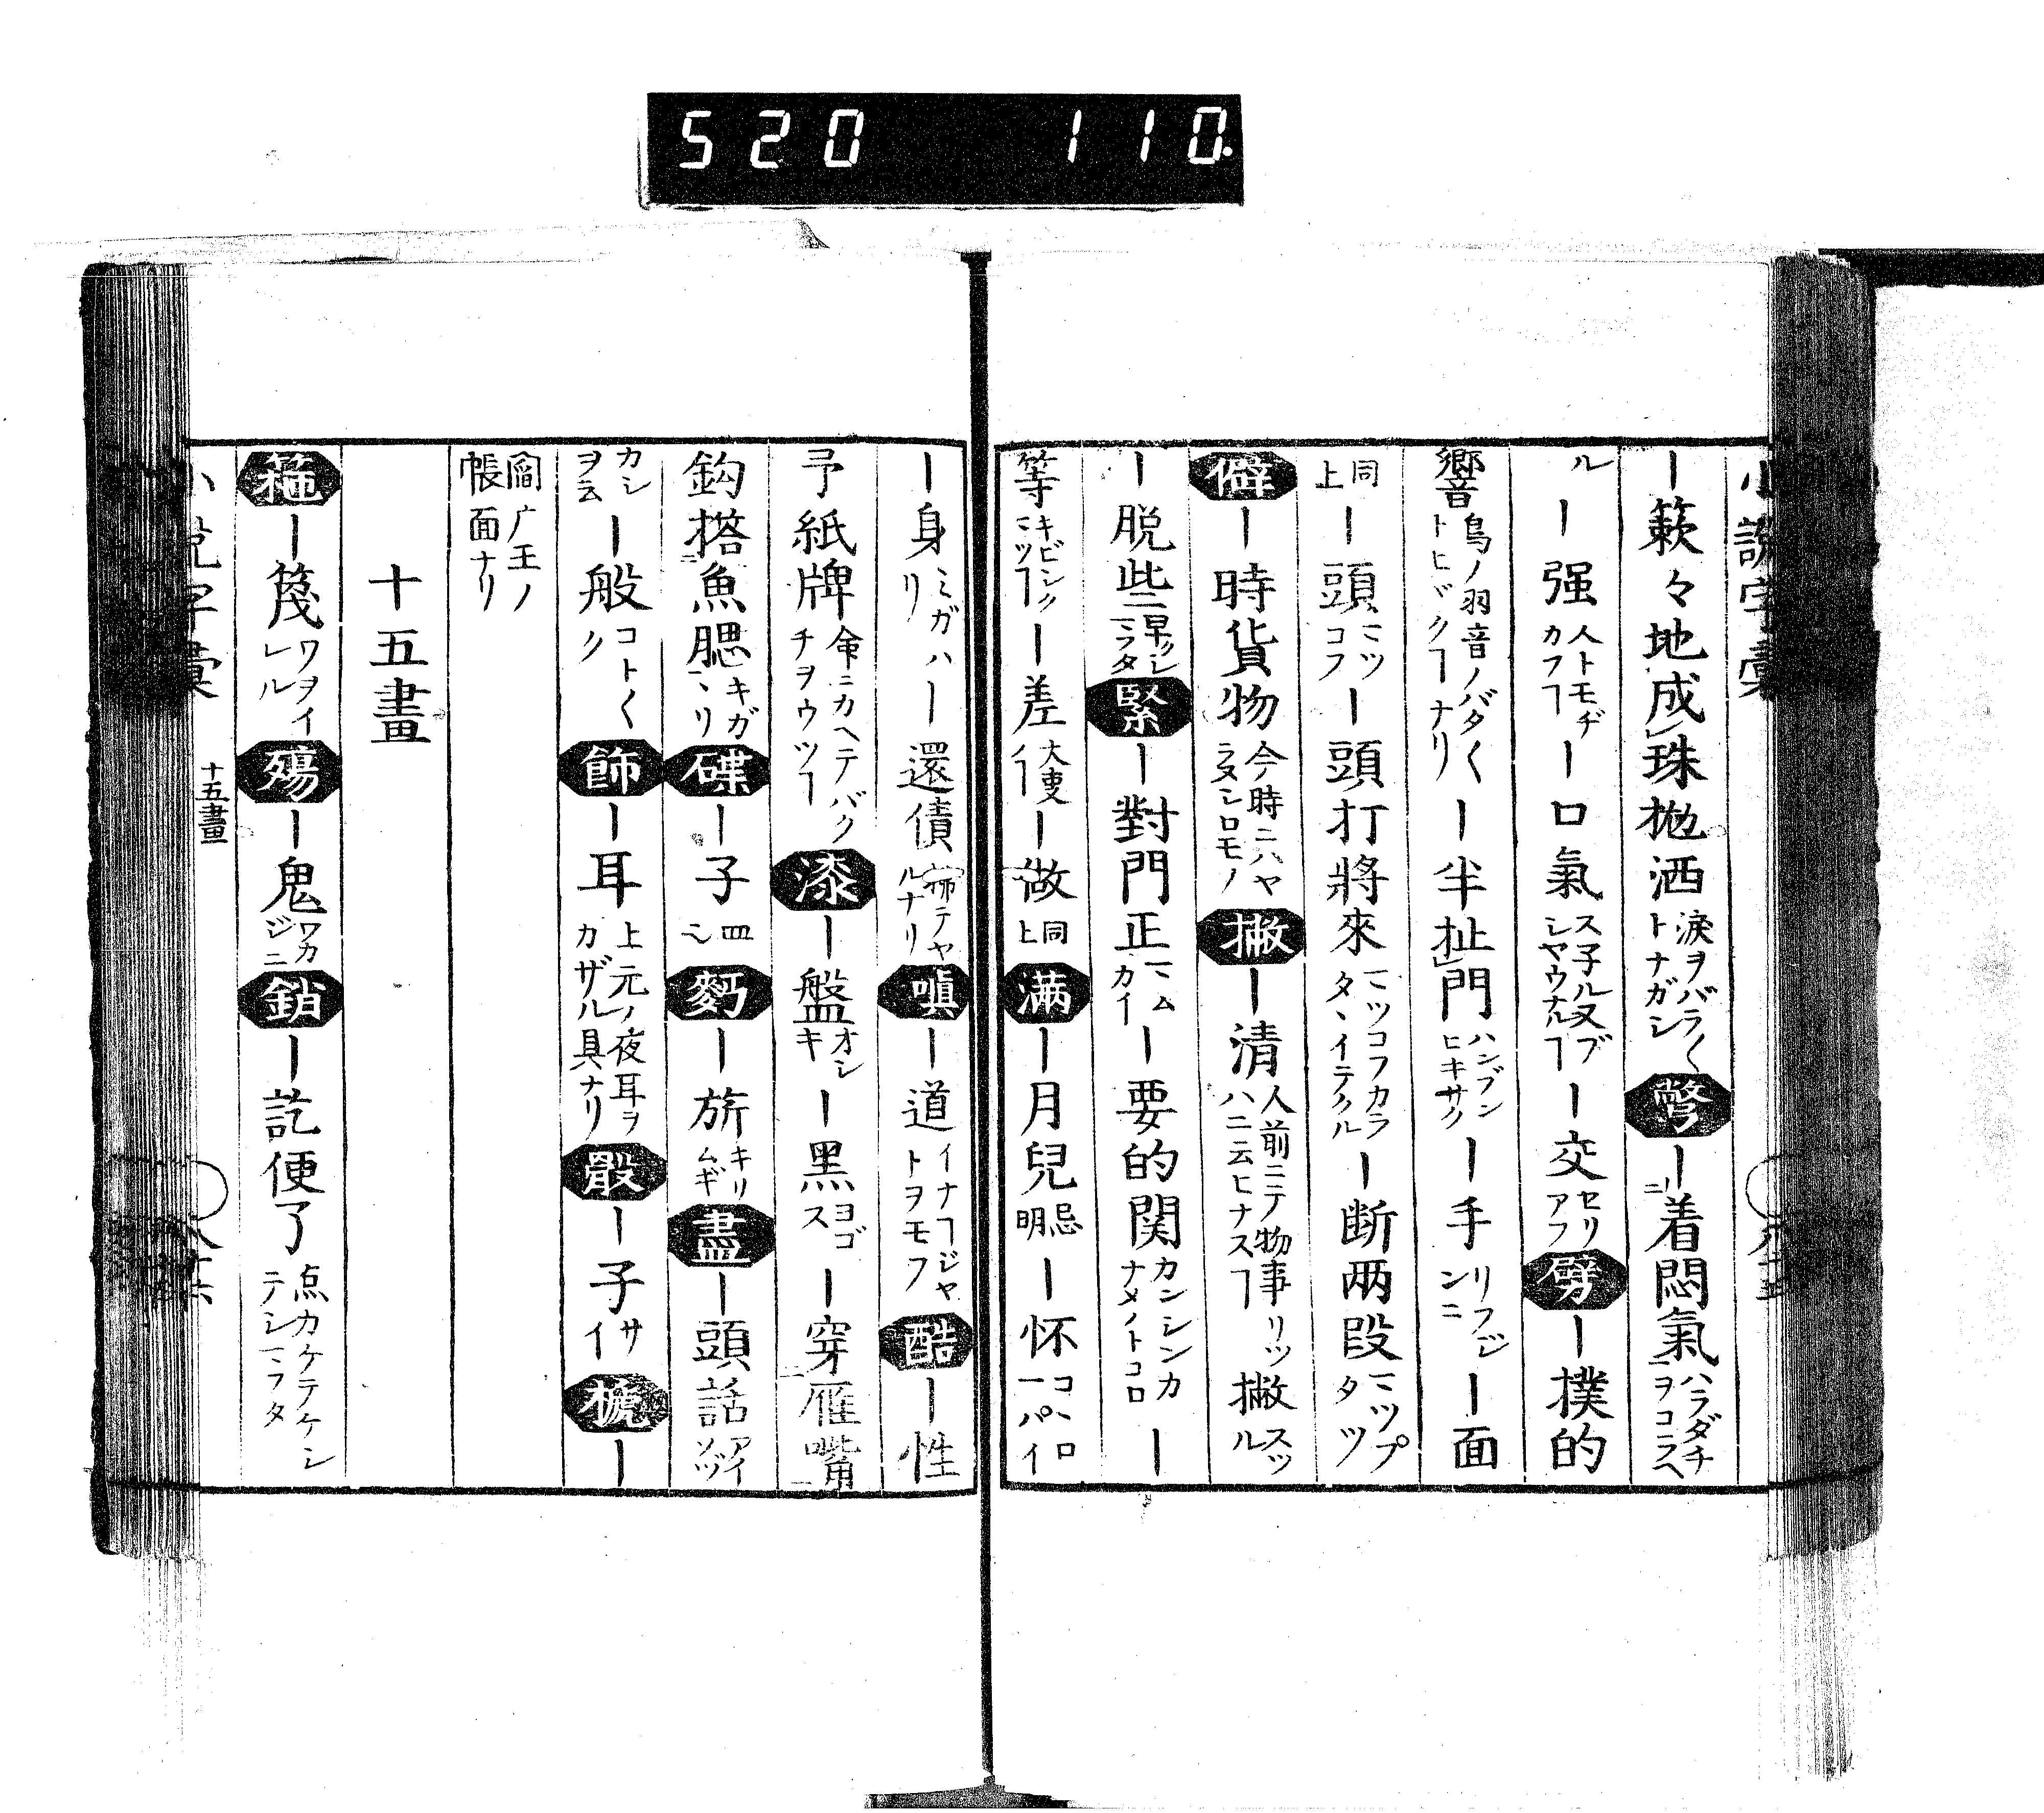 520 110.
小説字彙
ー簌々地成」珠抛洒 涙ヲバラ〱トナガシ 彆ー着悶氣 ハラダチヲコスヘ
ル ー强 人トモヂカフヿ ー口氣 スネル又ブシヤウナルヿ ー交 セリアフ 劈ー撲的
響 鳥ノ羽音ノバタ〱トヒヾクヿナリ ー半扯門 ハンブンヒキサク ー手 リフジンニ ー面
同上 ー頭 マツコフ ー頭打將來 マツコフカラタヽイテクル ー断兩段 マツプタツ
僻ー時貨物 今時ニハヤラヌシロモノ 撇ー清 人前ニテ物事リツハニ云ヒナスヿ 撇 スツル
ー脱些ニ 早クシマフタ 緊ー對門正 マムカイ ー要的関 カンシンカナメノトコロ ー
等 キビシクマツヿ ー差 大吏イヿ ー做 同上 満ー月兒 忌明 ー怀 コヽロ一パイ
ー身 ミガハリ ー還債 帰テヤルナリ 嗔ー道 イナヿジヤトヲモフ 酷ー性
予紙牌 命ニカヘテバクチヲウツヿ 漆ー盤 オシキ ー黑 ヨゴス ー穿雁嘴
鈎搭魚腮 キガマヽリ 碟ー子 皿 麪ー旂 キリムギ 盡ー頭話 アイソヅ
カシヲ云 ー般 コト〱ク 飾ー耳 上元ノ夜耳ヲカザル具ナリ 骰ー子 サイ ー
閻广王ノ帳面ナリ
十五畫
箷ー篾 ワヲイレル 殤ー鬼 ワカジニ 銷ー訖便了 点カケテケンテンマフタ
小説字彙 十五畫